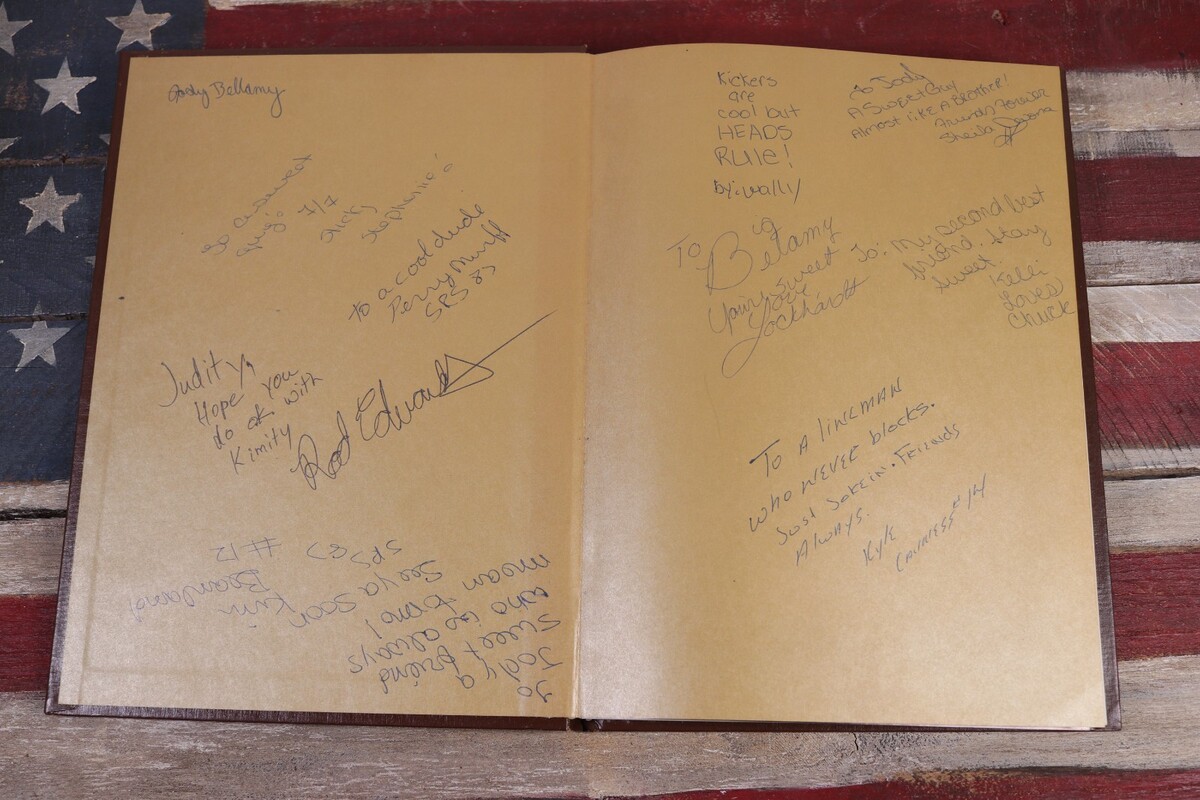 Jody Bellamy
To a sweet
guy!
Stephanie
to a cool dude
SPS 83
Judity,
Hope you
do ok. with
Kimity
Rod Edwards
To
Jody a
sweet friend
who is always
mean to me!
See ya soon
Kim
SPS 83
#12
Kickers
are
cool but
HEADS
RULE!
by: Wally
To Jody
A Sweet Guy
Almost like A BROTHER!
Friends Forever
Sheila
To
Bellamy
Your sweet
Love
Lockhardt
To: My second best
friend. Stay
sweet.
Kelli
Loves
Chuck
To A lineman
who NEVER blocks.
Just Jokein. Friends
Always.
Kyle
#14